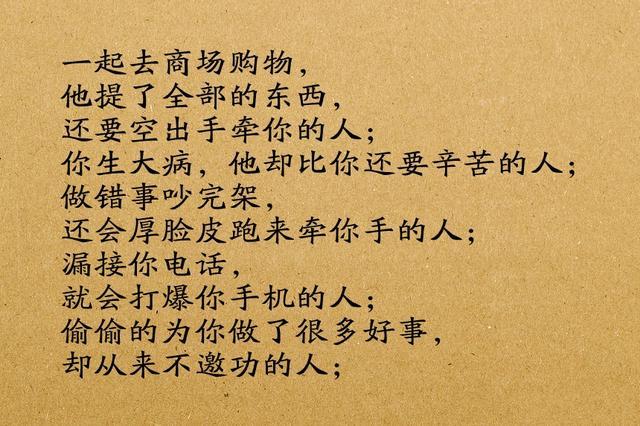 一起去商场购物，
他提了全部的东西，
还要空出手牵你的人；
你生大病，他却比你还要辛苦的人；
做错事吵完架，
还会厚脸皮跑来牵你手的人；
漏接你电话，
就会打爆你手机的人；
偷偷的为你做了很多好事，
却从来不邀功的人；